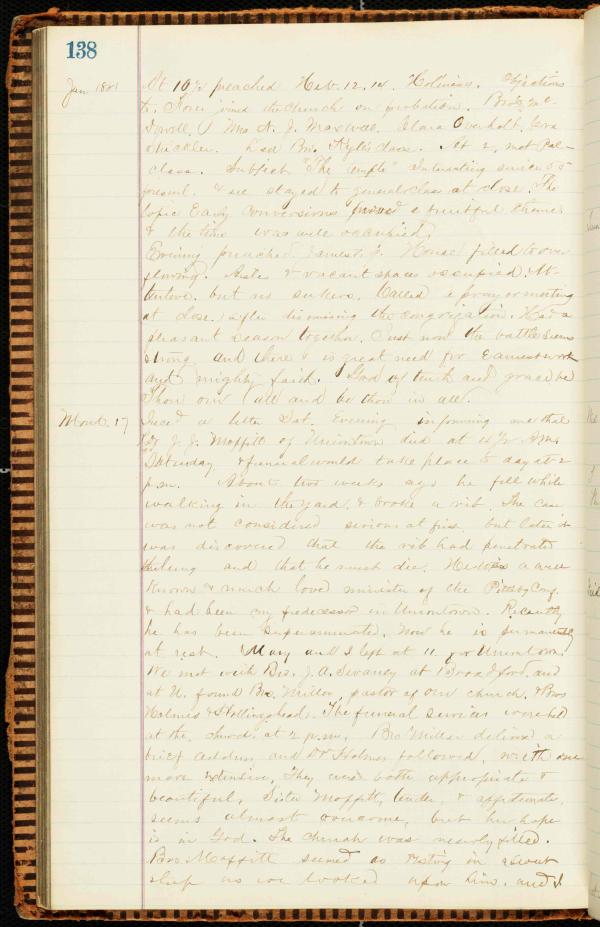 138
Jan 1881 At 10½ preached Heb. 12. 14. Holiness. Objections
&. Four joined the church on probation. Bro &
Mrs A. J. Maxwell. Clara Overholt.
Led Bro. Kyle's class. At 2. met Pal-
Class. Subject "The temple" Interesting service 55
present. & stayed to general class at close. The
topic Early Conversions proved a fruitful theme
& the time was well occupied.
Evening preached. House filled to over
flowing. Aisles & vacant spaces occupied. At-
tentive. but no seekers. Called a prayer meeting
at close. after dismissing the congregation. Had a
pleasant season together. Just now the battle seems
strong and there is great need for Earnest work
and mighty faith. God of truth and grace be
Thou our all and be thou in all.
Mond. 17 Rece'd a letter Sat. Evening informing me that
Dr J. J. Moffitt of Uniontown died at A.M.
Saturday & funeral would take place to day at 2
p.m. About two weeks ago he fell while
walking in the yard. & broke a rib. The case
was not considered serious at first but later it
was discovered that the rib had penetrated
the lung and that he must die. He was a well
known & much loved minister of the Pittsbg Conf.
& had been my predecessor in Uniontown. Recently
he has been superannuated. Now he is permanently
at rest. Mary and I left at 11 for Uniontown.
We met with Bro. J. A. Swaney at Broadford. and
at U. found Bro. Miller, pastor of our church. & Bros
Holmes & Hollingshead. The funeral services were held
at the church at 2 p.m. Bro Miller delivered a
brief address, and Dr Holmes followed, with one
more extensive. They were both appropriate &
beautiful. Sister Moffitt, tender, & affectionate,
seems almost overcome, but her hope
is in God. The church was nearly filled.
Bro. Moffitt seemed as resting in sweet
sleep as we looked upon him. and I